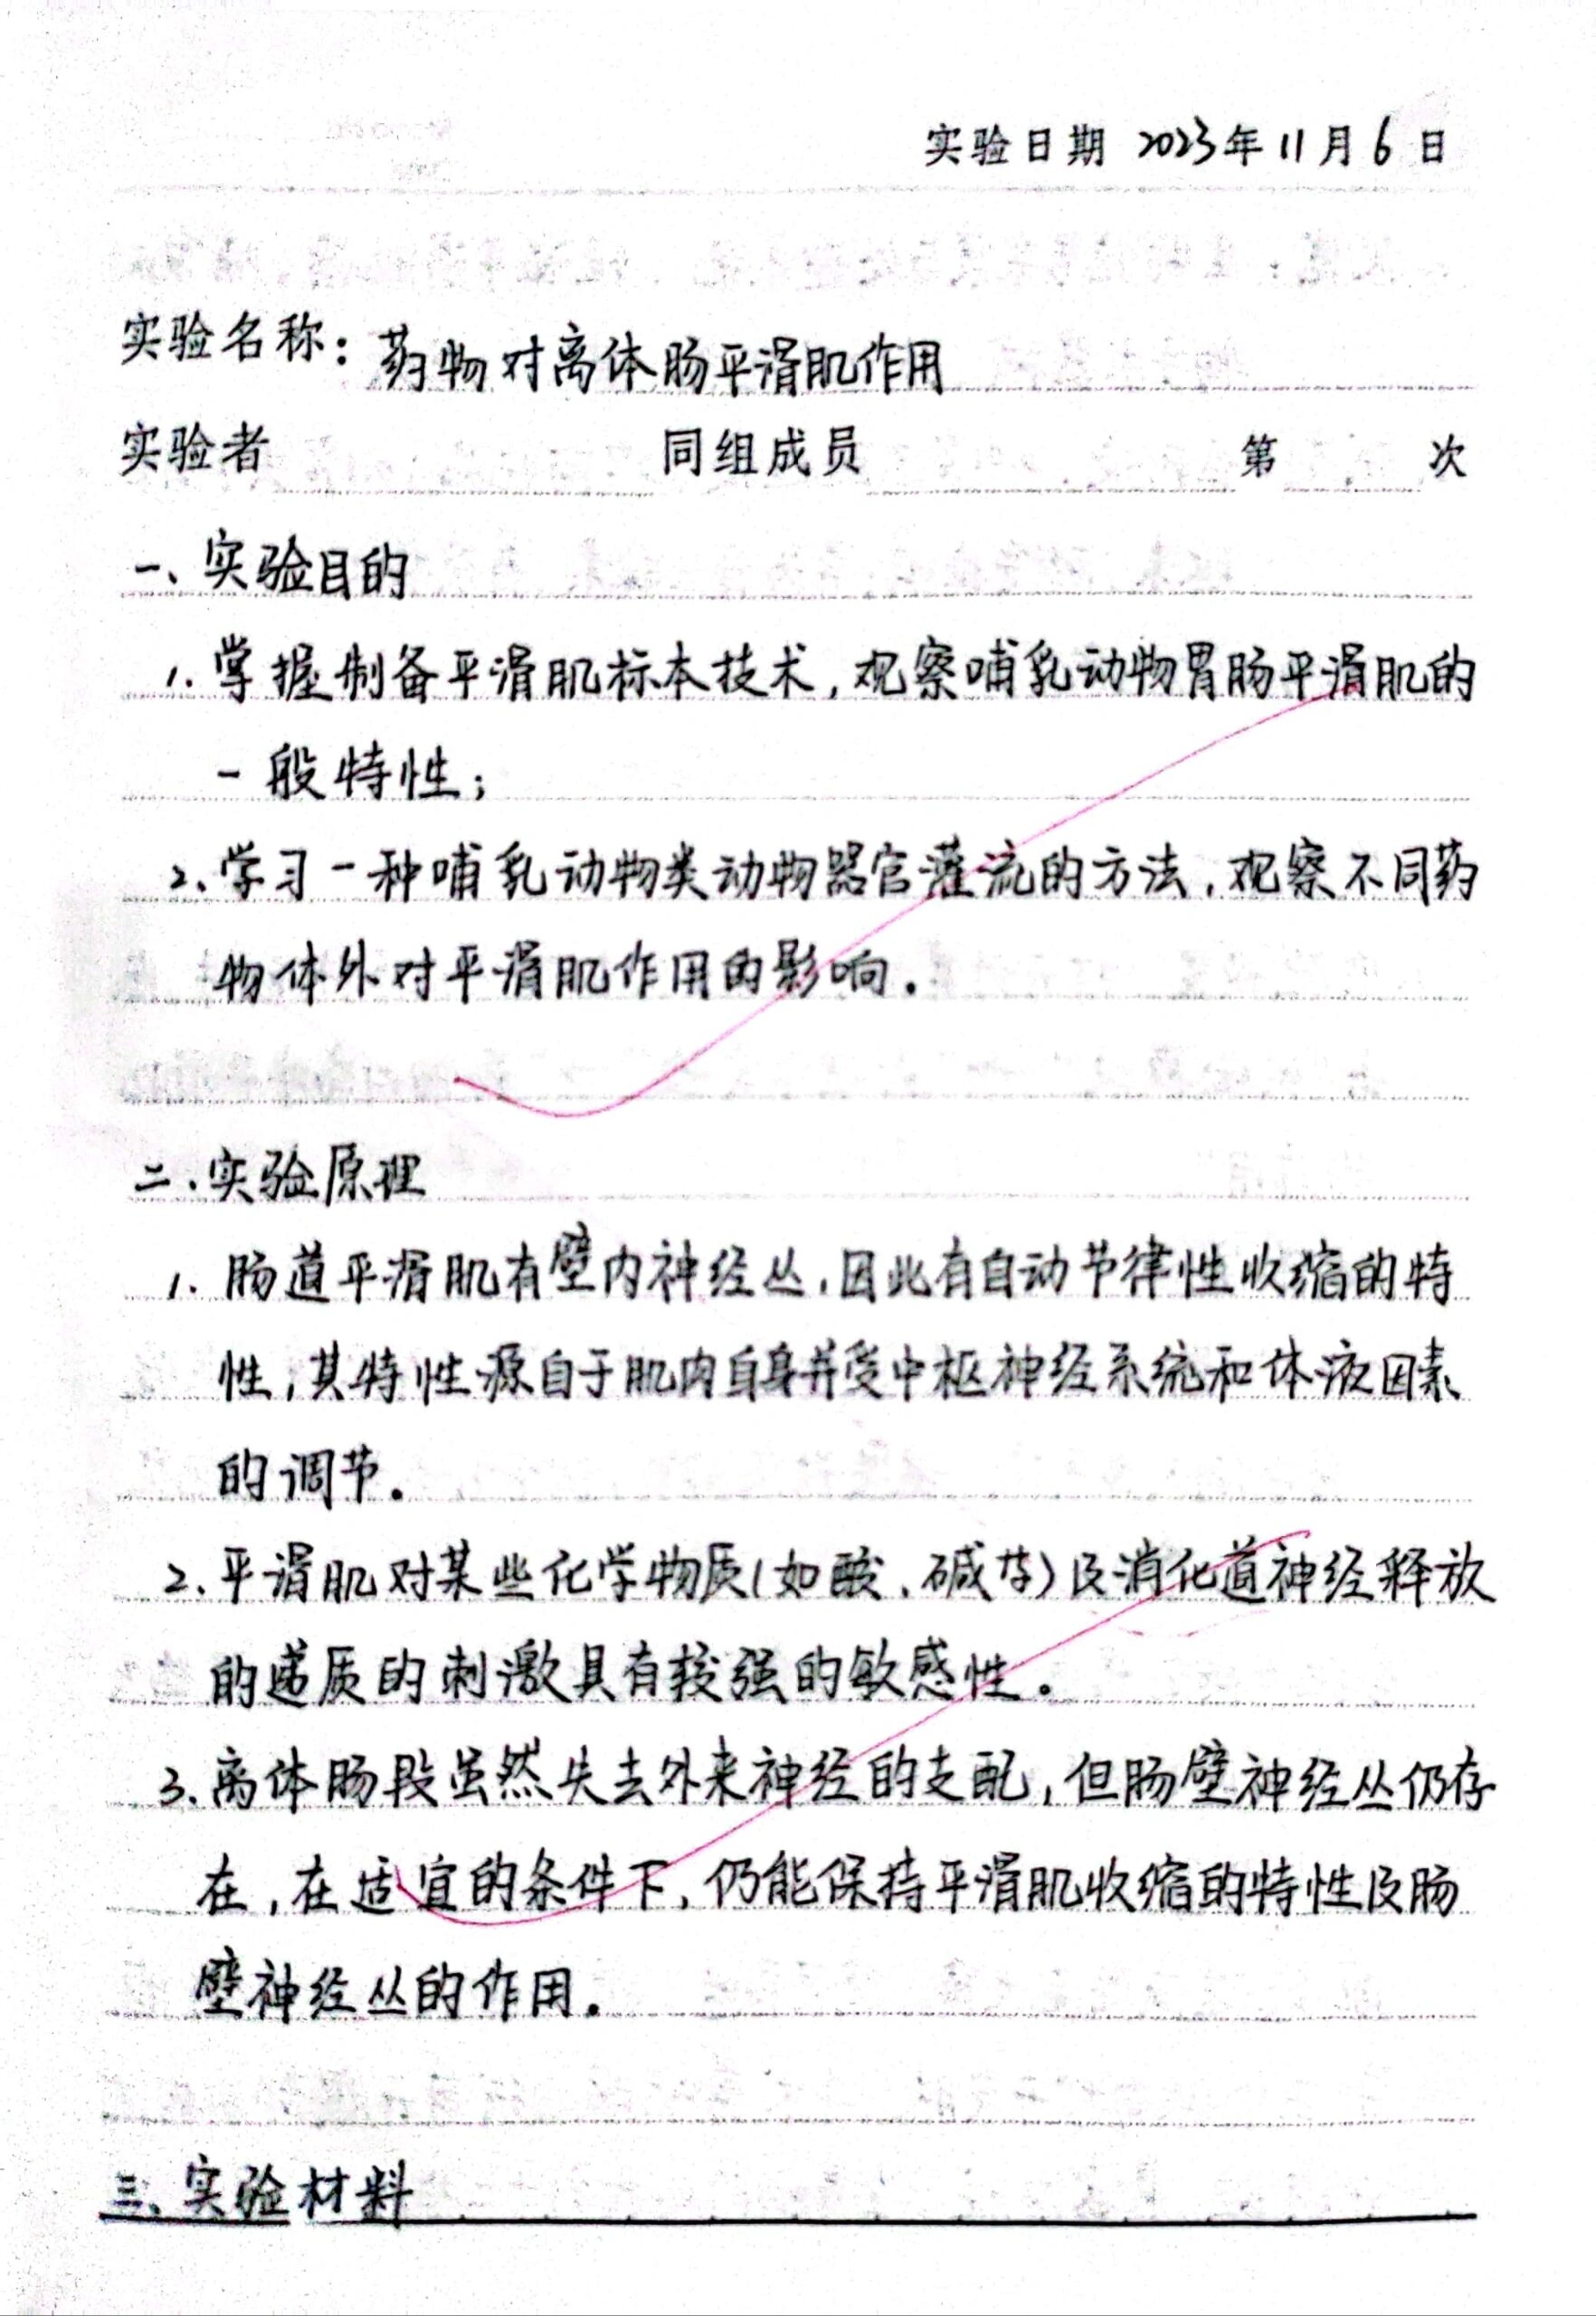 实验日期 2023年11月6日
实验名称：药物对离体肠平滑肌作用
实验者 同组成员 第 次
一、实验目的
1. 掌握制备平滑肌标本技术，观察哺乳动物胃肠平滑肌的
一般特性；
2. 学习一种哺乳动物类动物器官灌流的方法，观察不同药
物体外对平滑肌作用的影响。
二．实验原理
1. 肠道平滑肌有壁内神经丛，因此有自动节律性收缩的特
性，其特性源自于肌肉自身并受中枢神经系统和体液因素
的调节。
2. 平滑肌对某些化学物质(如酸、碱等)及消化道神经释放
的递质的刺激具有较强的敏感性。
3. 离体肠段虽然失去外来神经的支配，但肠壁神经丛仍存
在，在适宜的条件下，仍能保持平滑肌收缩的特性及肠
壁神经丛的作用。
三、实验材料